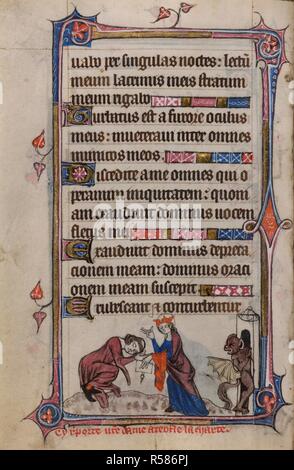 uabo per singulas noctes: lectū
meum lacrimis meis stratum
meum rigabo
Turbatus est a furore oculus
meus: inueteraui inter omnes
inimicos meos.
Discedite a me omnes qui o
peramini iniquitatem: quoni
am exaudiuit dominus uocem
fletus mei
Exaudiuit dominus depreca
cionem meam: dominus oraci
onem meam suscepit
Erubescant & conturbentur
Cy porte nre dame a teofle la chartre.